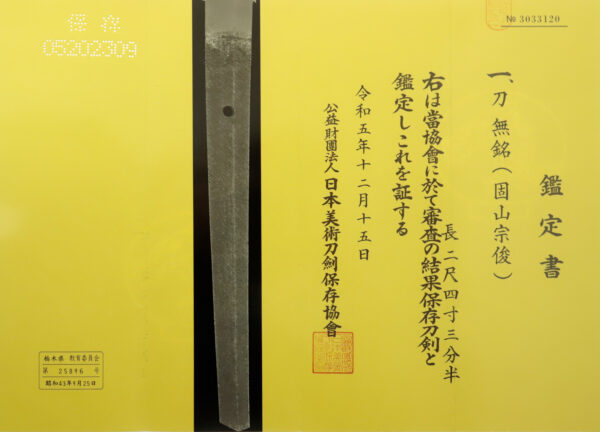 № 3033120
鑑定書
一、刀 無銘(固山宗俊)
長二尺四寸三分半
右は當協會に於て審査の結果保存刀剣と
鑑定しこれを証する
令和五年十二月十五日
公益財團法人 日本美術刀劍保存協會
保存
05202309
栃木県 教育委員会
第 25816 号
昭和43年9月25日